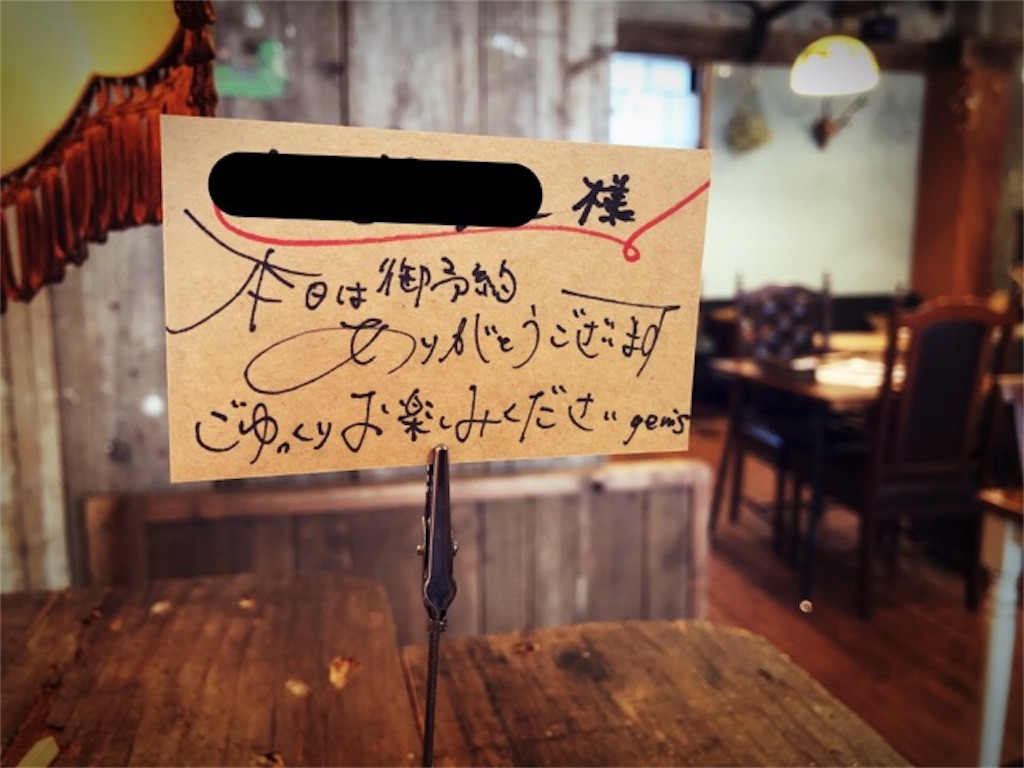 様
本日は御予約
ありがとうございます
ごゆっくりお楽しみください gen's